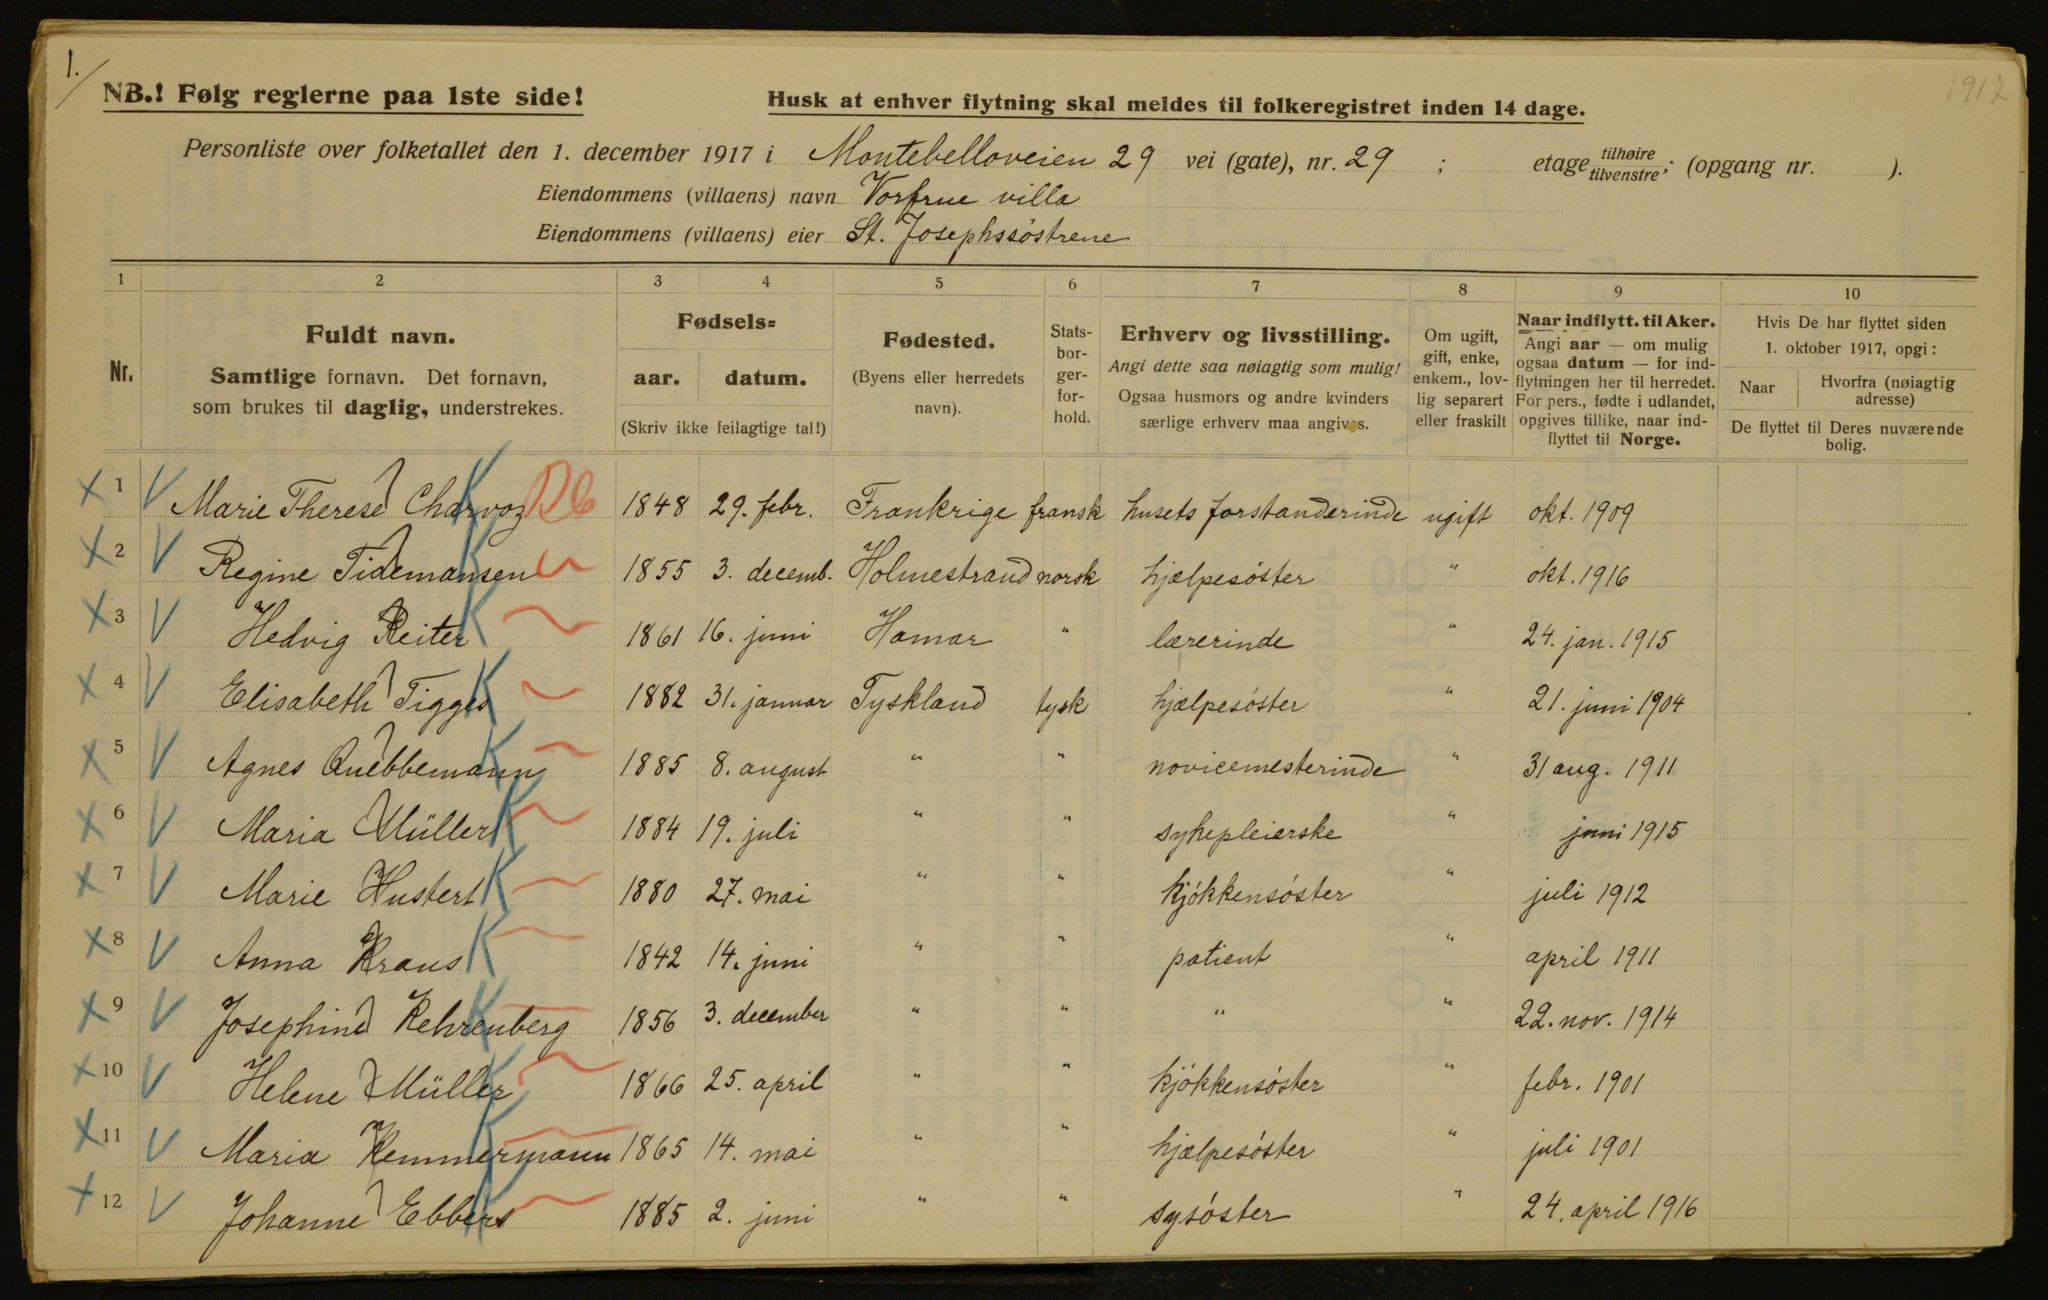 1.
1912
NB.! Følg reglerne paa 1ste side!
Husk at enhver flytning skal meldes til folkeregistret inden 14 dage.
Personliste over folketallet den 1. december 1917 i Montebelloveien 29 vei (gate), nr. 29 ; etage tilhøire tilvenstre; (opgang nr. ).
Eiendommens (villaens) navn Vorfrue villa
Eiendommens (villaens) eier St. Josephssöstrene
1 2 3 4 5 6 7 8 9 10
Nr.
Fuldt navn.
Samtlige fornavn. Det fornavn,
som brukes til daglig, understrekes.
Fødsels=
aar. datum.
(Skriv ikke feilagtige tal!)
Fødested.
(Byens eller herredets
navn).
Stats-
bor-
ger-
for-
hold.
Erhverv og livsstilling.
Angi dette saa nøiagtig som mulig!
Ogsaa husmors og andre kvinders
særlige erhverv maa angives.
Om ugift,
gift, enke,
enkem., lov-
lig separert
eller fraskilt
Naar indflytt. til Aker.
Angi aar — om mulig
ogsaa datum — for ind-
flytningen her til herredet.
For pers., fødte i udlandet,
opgives tillike, naar ind-
flyttet til Norge.
Hvis De har flyttet siden
1. oktober 1917, opgi:
Naar
Hvorfra (nøiagtig
adresse)
De flyttet til Deres nuværende
bolig.
x 1 V Marie Therese Charvoz K 1848 29. febr. Frankrige fransk husets forstanderinde ugift okt. 1909
x 2 V Regine Tidemansen K 1855 3. decemb. Holmestrand norsk hjælpesöster " okt. 1916
x 3 V Hedvig Reiter K 1861 16. juni Hamar " lærerinde " 24. jan. 1915
x 4 V Elisabeth Tigges K 1882 31. januar Tyskland tysk hjælpesöster " 21. juni 1904
x 5 V Agnes Quebbemann K 1885 8. august " " novicemesterinde " 31 aug. 1911
x 6 V Maria Müller K 1884 19. juli " " sykepleierske " juni 1915
x 7 V Marie Hustert K 1880 27. mai " " kjökkensöster " juli 1912
x 8 V Anna Kraus K 1842 14. juni " " patient " april 1911
x 9 V Josephine Kehrenberg K 1856 3. december " " " " 22. nov. 1914
x 10 V Helene Müller K 1866 25. april " " kjökkensöster " febr. 1901
x 11 V Maria Kemmermann K 1865 14. mai " " hjælpesöster " juli 1901
x 12 V Johanne Ebbers K 1885 2. juni " " sysöster " 24. april 1916